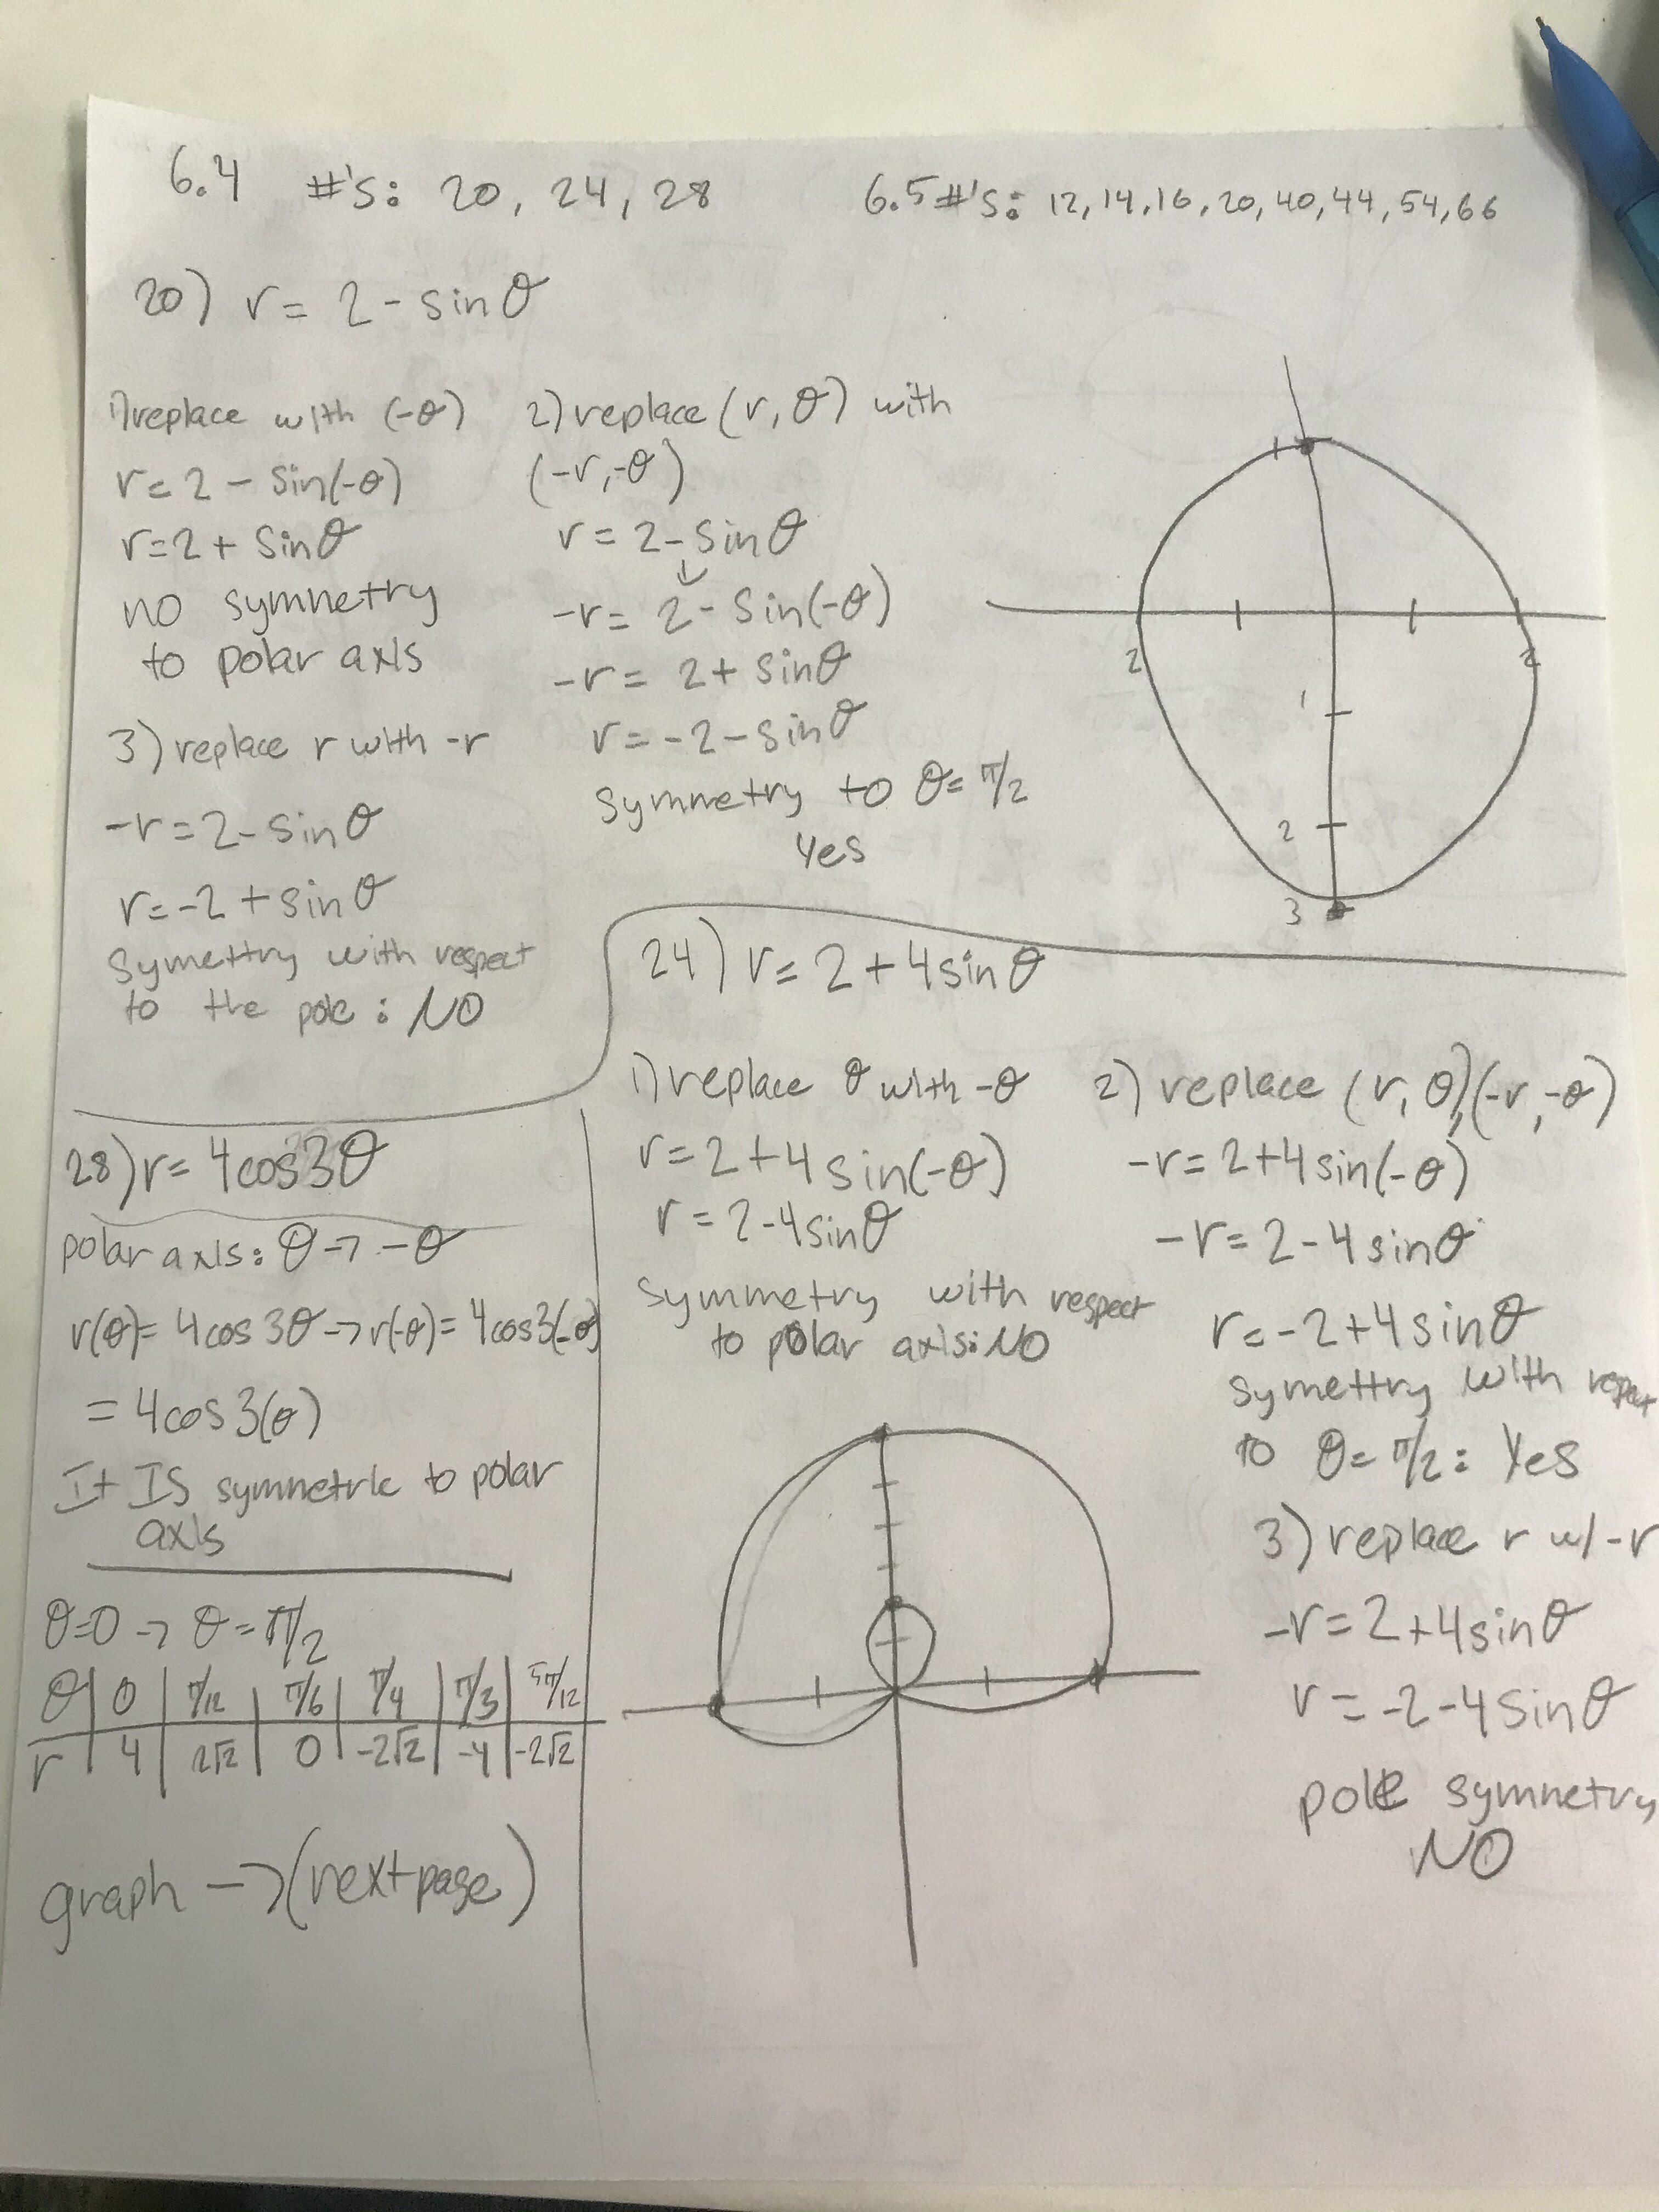 6.4 #'s: 20, 24, 28
6.5 #'s: 12, 14, 16, 20, 40, 44, 54, 66
20) r = 2 - sinθ
1) replace with (-θ)
r = 2 - sin(-θ)
r = 2 + sinθ
no symmetry
to polar axis
2) replace (r, θ) with
(-r, -θ)
r = 2 - sinθ
↓
-r = 2 - sin(-θ)
-r = 2 + sinθ
r = -2 - sinθ
symmetry to θ = π/2
Yes
3) replace r with -r
-r = 2 - sinθ
r = -2 + sinθ
Symettry with respect
to the pole : NO
1
2
2
1
2
3
24) r = 2 + 4sinθ
1) replace θ with -θ
r = 2 + 4sin(-θ)
r = 2 - 4sinθ
Symmetry with respect
to polar axis: NO
2) replace (r, θ), (-r, -θ)
-r = 2 + 4sin(-θ)
-r = 2 - 4sinθ
r = -2 + 4sinθ
symettry with respect
to θ = π/2 : Yes
3) replace r w/ -r
-r = 2 + 4sinθ
r = -2 - 4sinθ
pole symmetry
NO
28) r = 4cos3θ
polar axis: θ → -θ
r(θ) = 4cos3θ → r(-θ) = 4cos3(-θ)
= 4cos3(θ)
It IS symmetric to polar
axis
θ = 0 → θ = π/2
θ | 0 | π/12 | π/6 | π/4 | π/3 | 5π/12
r | 4 | 2√2 | 0 | -2√2 | -4 | -2√2
graph → (next page)